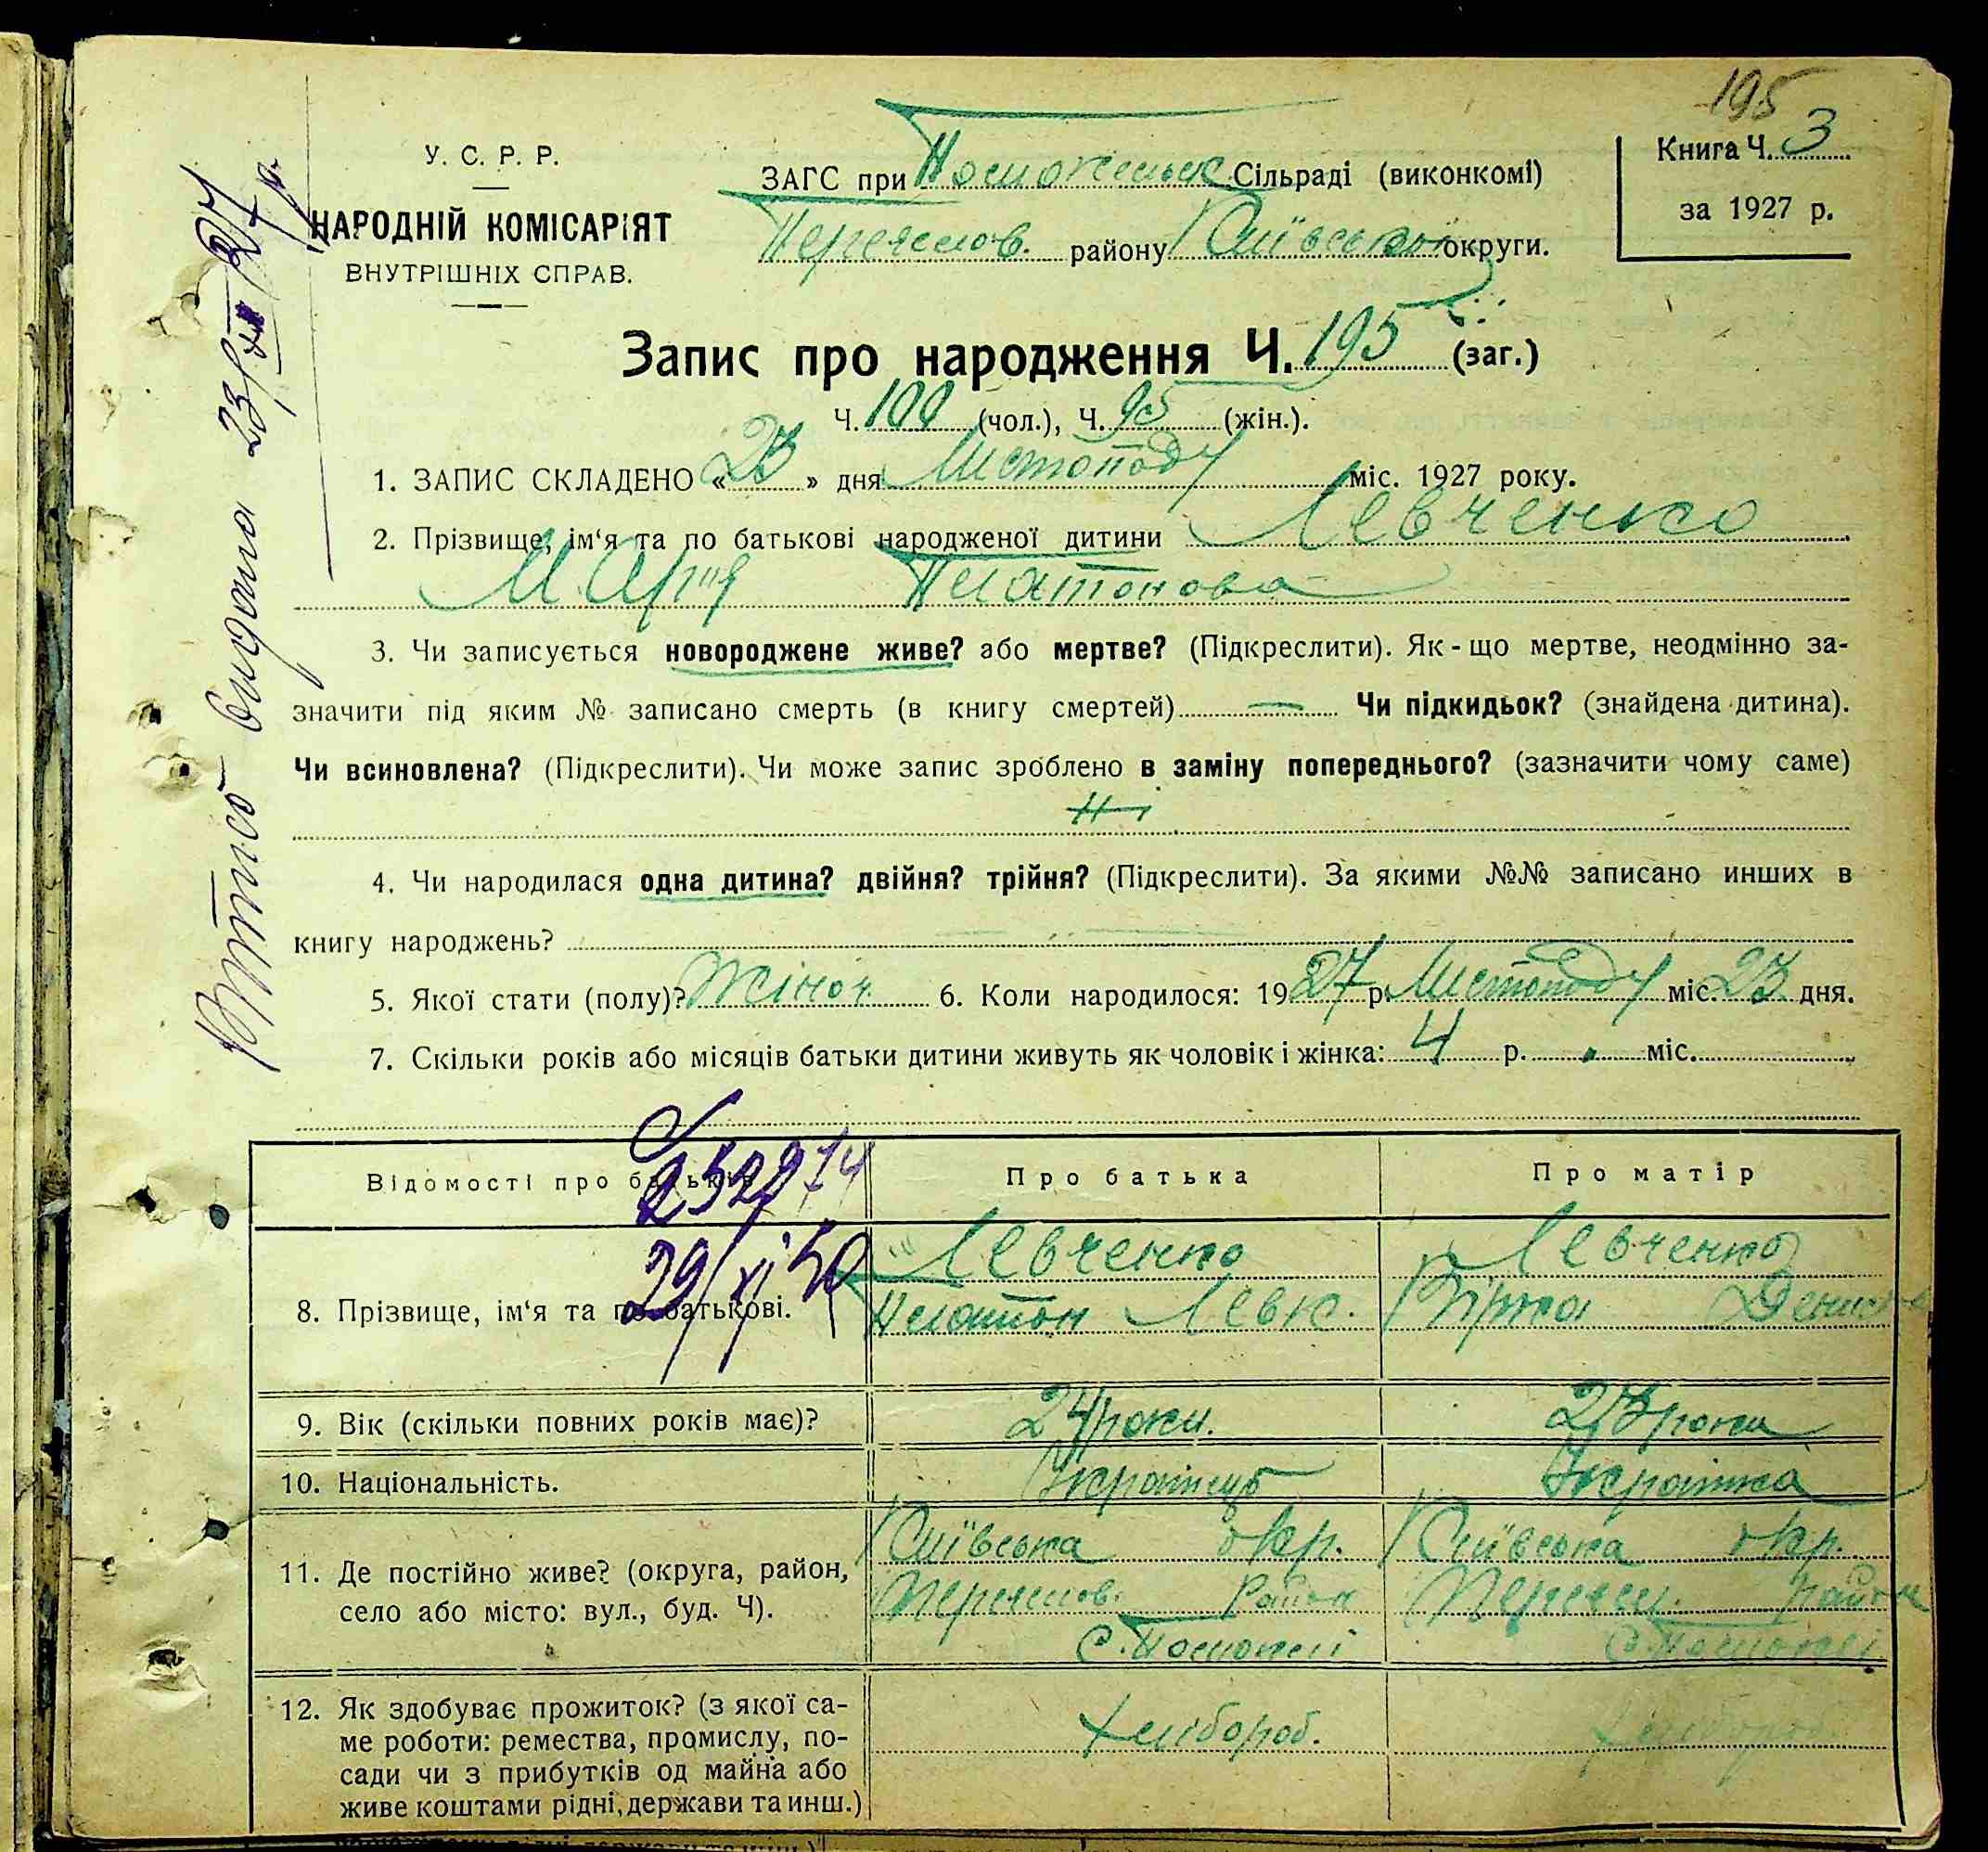 195
У. С. Р. Р.
НАРОДНІЙ КОМІСАРІЯТ
ВНУТРІШНІХ СПРАВ.
ЗАГС при Сільраді (виконкомі)
Переяслов. району Київської округи.
Книга Ч. 3
за 1927 р.
Запис про народження Ч. 195 (заг.)
Ч. 100 (чол.), Ч. 95 (жін.).
1. ЗАПИС СКЛАДЕНО « 23 » дня Листопаду міс. 1927 року.
2. Прізвище, ім‘я та по батькові народженої дитини Левченко
Марія Платонова
3. Чи записується новороджене живе? або мертве? (Підкреслити). Як-що мертве, неодмінно за-
значити під яким № записано смерть (в книгу смертей) — Чи підкидьок? (знайдена дитина).
Чи всиновлена? (Підкреслити). Чи може запис зроблено в заміну попереднього? (зазначити чому саме)
Ні
4. Чи народилася одна дитина? двійня? трійня? (Підкреслити). За якими №№ записано инших в
книгу народжень?
5. Якої стати (полу)? Жіноч 6. Коли народилося: 1927 р. Листопаду міс. 23 дня.
7. Скільки років або місяців батьки дитини живуть як чоловік і жінка: 4 р. міс.
Виписъ видано 23/XI 27 р.
Відомості про батьків
Про батька
Про матір
29/XI 50
8. Прізвище, ім‘я та по батькові.
Левченко
Платон Левк.
Левченко
Денисова
9. Вік (скільки повних років має)?
24 роки.
23 роки
10. Національність.
Українець
Українка
11. Де постійно живе? (округа, район,
село або місто: вул., буд. Ч).
Київська окр.
Переяслов. Район
с.
Київська окр.
Переясл. район
с.
12. Як здобуває прожиток? (з якої са-
ме роботи: ремества, промислу, по-
сади чи з прибутків од майна або
живе коштами рідні, держави та инш.)
хлібороб.
хлібороб.